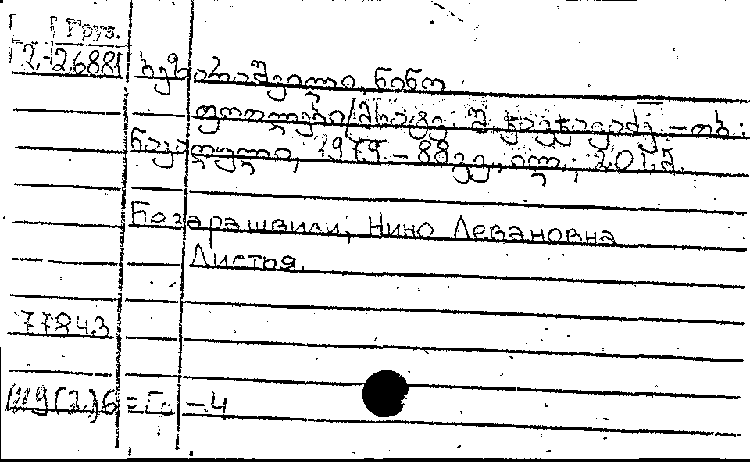 Груз.
2-26881 ბეზარაშვილი, ნინო
ფოთლები /მხატვ. შ. ჭავჭავაძე. – თბ.:
ნაკადული, 1979. – 88 გვ., ილ.; 20 სმ.
Безарашвили, Нино Левановна
Листья.
77843
Ш9(2)6=Гр-4